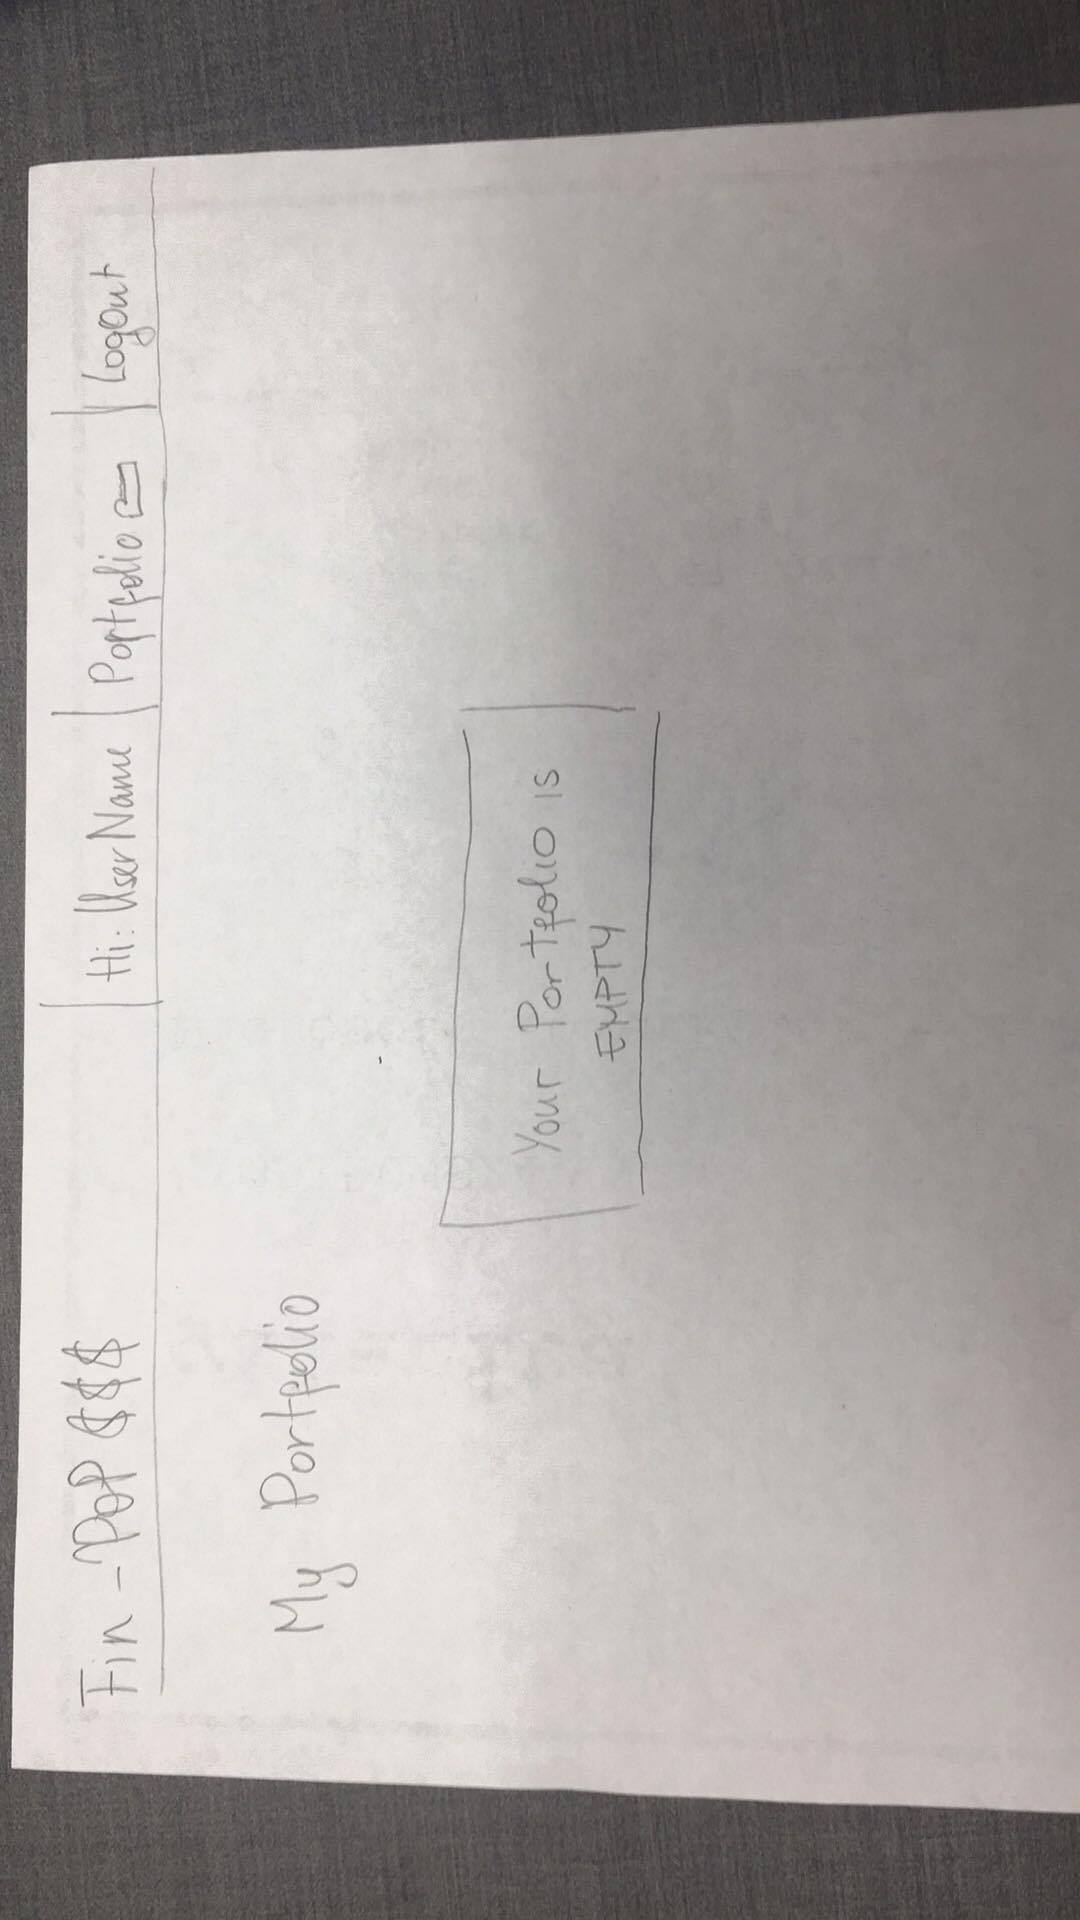 Fin - POP $$$ | Hi: UserName | Portfolio | Logout
My Portfolio
Your Portfolio is
EMPTY